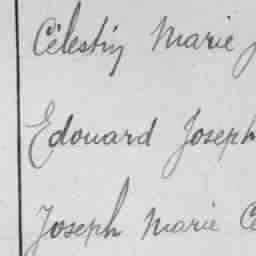 Célestin Marie
Edouard Joseph
Joseph Marie